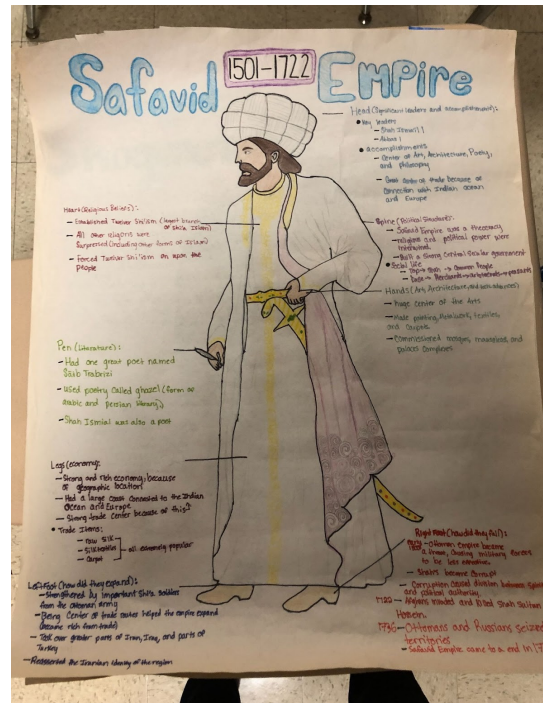 Safavid 1501-1722 Empire
Head (Significant leaders and accomplishments):
• Key leaders
- Shah Ismail I
- Abbas I
• accomplishments
- Center of Art, Architecture, Poetry,
and philosophy
- Great state of trade because of
connection with Indian ocean
and Europe
Heart (Religious Beliefs):
- Established Twelver Shi'ism (largest branch
of Shi'a Islam)
- All other religions were
Surpressed (including other forms of Islam)
- Forced Twelver Shi'ism upon the
people
Spine (Political Structure):
- Safavid Empire was a theocracy
- religious and political power were
intertwined.
- Built a strong central secular government
• Social life
- Top → Shah → Common People
- Base → Merchants → aristocrats → peasants
Hands (Art, Architecture, and tech advances)
- Huge center of the Arts
- Made painting, Metalwork, textiles,
and Carpets
- Commissioned mosques, mausoleums, and
palace complexes
Pen (Literature):
- Had one great poet named
Saib Trabrizi
- used poetry called ghazel (form of
arabic and persian library)
- Shah Ismial was also a poet
Legs (economy:
- Strong and rich economy; because
of geographic location
- Had a large coast connected to the Indian
Ocean and Europe
- Strong trade center because of this?
• Trade Items:
- raw silk
- silk textiles
- Carpet
all extremely popular
Left Foot (how did they expand):
- Strengthened by important Shi'a soldiers
from the ottoman army
- Being Center of trade routes helped the empire expand
(became rich from trade)
- Took over greater parts of Iran, Iraq, and parts of
Turkey
- Reasserted the Iranian identity of the region
Right Foot (how did they fall):
- Ottoman Empire became
a threat, causing military forces
to be less
- Shahs became corrupt
- Corruption caused division between
and political authority.
1722 - Afghans invaded and killed Shah Sultan
Hossein.
1736 - Ottomans and Russians seized
territories
- Safavid Empire came to a end in